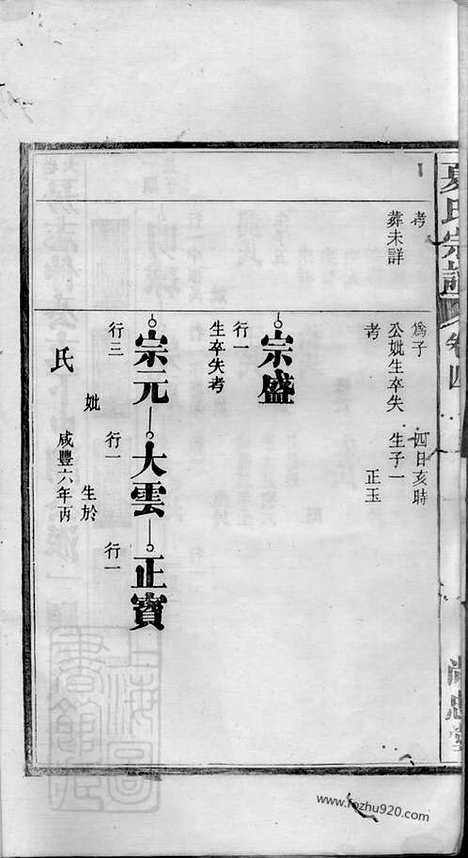 夏氏宗譜
卷四
考
葬未詳
為子
公妣生卒失
考
四日亥時
生子一
正玉
宗盛
行一
生卒失考
宗元
大雲
正寶
行三
行一
行一
妣
氏
生於
咸豐六年丙
上海圖書館藏
www.fozhu920.com